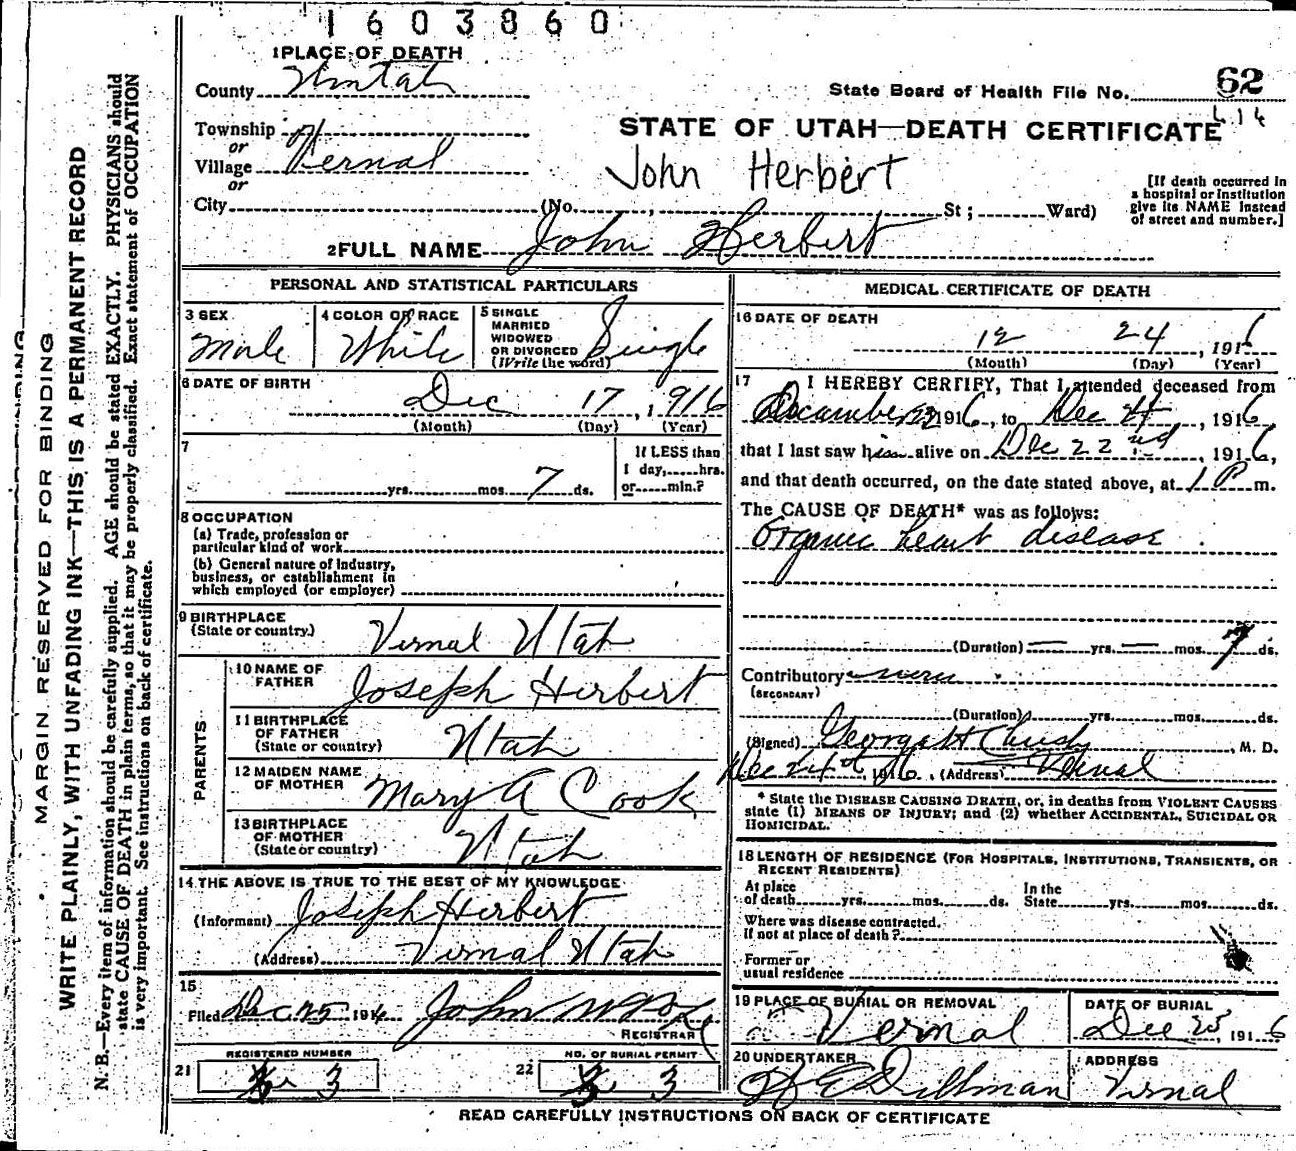 1603860
1 PLACE OF DEATH
County Uintah
State Board of Health File No. 62
Township
or
Village Vernal
or
City (No. , St; Ward)
STATE OF UTAH—DEATH CERTIFICATE
John Herbert
[If death occurred in
a hospital or institution
give its NAME instead
of street and number.]
2 FULL NAME John Herbert
PERSONAL AND STATISTICAL PARTICULARS
3 SEX
Male
4 COLOR OR RACE
White
5 SINGLE
MARRIED
WIDOWED
OR DIVORCED
(Write the word)
Single
6 DATE OF BIRTH
Dec 17, 1916
(Month) (Day) (Year)
7
yrs. mos. 7 ds.
If LESS than
1 day, hrs.
or min.?
8 OCCUPATION
(a) Trade, profession or
particular kind of work
(b) General nature of industry,
business, or establishment in
which employed (or employer)
9 BIRTHPLACE
(State or country.)
Vernal Utah
PARENTS
10 NAME OF
FATHER
Joseph Herbert
11 BIRTHPLACE
OF FATHER
(State or country)
Utah
12 MAIDEN NAME
OF MOTHER
Mary A Cook
13 BIRTHPLACE
OF MOTHER
(State or country)
Utah
14 THE ABOVE IS TRUE TO THE BEST OF MY KNOWLEDGE
(Informant) Joseph Herbert
(Address) Vernal Utah
15
Filed Dec 25 1916 John
REGISTRAR
REGISTERED NUMBER
21 3
NO. OF BURIAL PERMIT
22 3
MEDICAL CERTIFICATE OF DEATH
16 DATE OF DEATH
12 24, 1916
(Month) (Day) (Year)
17 I HEREBY CERTIFY, That I attended deceased from
December 22 1916, to Dec 24, 1916,
that I last saw him alive on Dec 22nd, 1916,
and that death occurred, on the date stated above, at 1 P m.
The CAUSE OF DEATH* was as follows:
Organic heart disease
(Duration) yrs. mos. 7 ds.
Contributory
(SECONDARY)
(Duration) yrs. mos. ds.
(Signed) George H , M. D.
Dec 24th 1916 (Address) Vernal
* State the DISEASE CAUSING DEATH, or, in deaths from VIOLENT CAUSES
state (1) MEANS OF INJURY; and (2) whether ACCIDENTAL, SUICIDAL OR
HOMICIDAL.
18 LENGTH OF RESIDENCE (FOR HOSPITALS, INSTITUTIONS, TRANSIENTS, OR
RECENT RESIDENTS)
At place
of death yrs. mos. ds.
In the
State yrs. mos. ds.
Where was disease contracted,
if not at place of death?
Former or
usual residence
19 PLACE OF BURIAL OR REMOVAL
Vernal
DATE OF BURIAL
Dec 25, 1916
20 UNDERTAKER
Dillman
ADDRESS
Vernal
READ CAREFULLY INSTRUCTIONS ON BACK OF CERTIFICATE
MARGIN RESERVED FOR BINDING
WRITE PLAINLY, WITH UNFADING INK—THIS IS A PERMANENT RECORD
N. B.—Every item of information should be carefully supplied. AGE should be stated EXACTLY. PHYSICIANS should
state CAUSE OF DEATH in plain terms, so that it may be properly classified. Exact statement of OCCUPATION
is very important. See instructions on back of certificate.